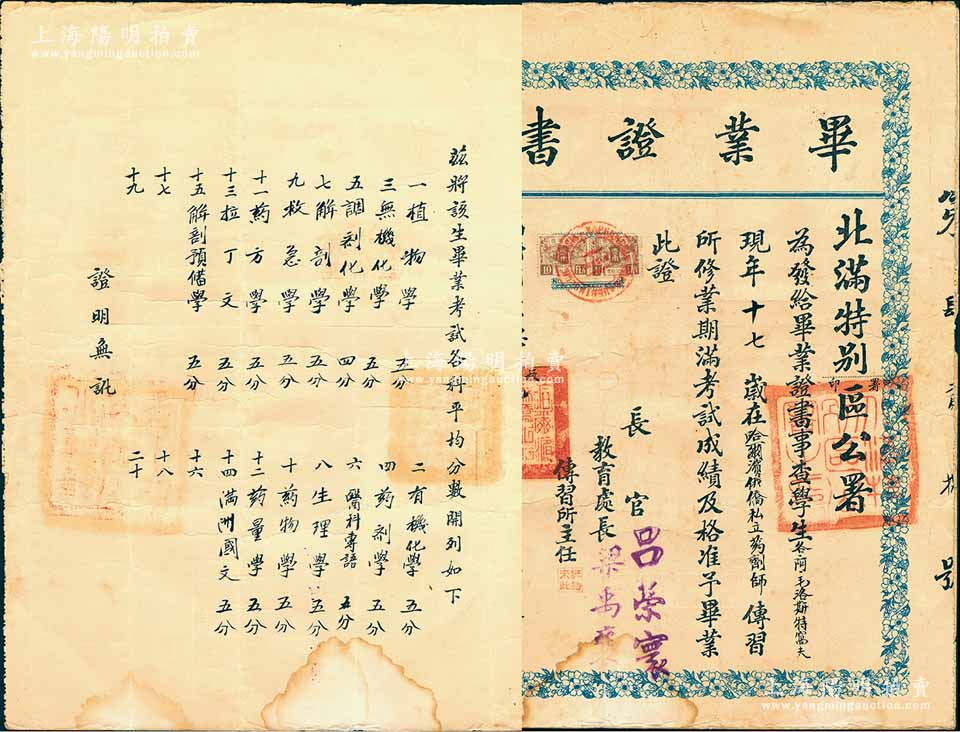 畢業證書
北滿特別區公署
為發給畢業證書事查學生
現年十七歲在哈爾濱俄僑私立药劑師傳習
所修業期滿考試成績及格准予畢業
此證
長官呂榮寰
教育處長梁禹襄
傳習所主任
號
茲將該生畢業考試各科平均分數開列如下
一植物學 五分
二有機化學 五分
三無機化學 五分
四药劑學 五分
五調剂化學 四分
六醫科專語 五分
七解剖學 五分
八生理學 五分
九救急學 五分
十药物學 五分
十一药方學 五分
十二药量學 五分
十三拉丁文 五分
十四滿洲國文 五分
十五解剖預備學 五分
十六
十七
十八
十九
二十
證明無訛
上海陽明拍賣
www.yangmingauction.com
上海陽明拍賣
www.yangmingauction.com
上海陽明拍賣
www.yangmingauction.com